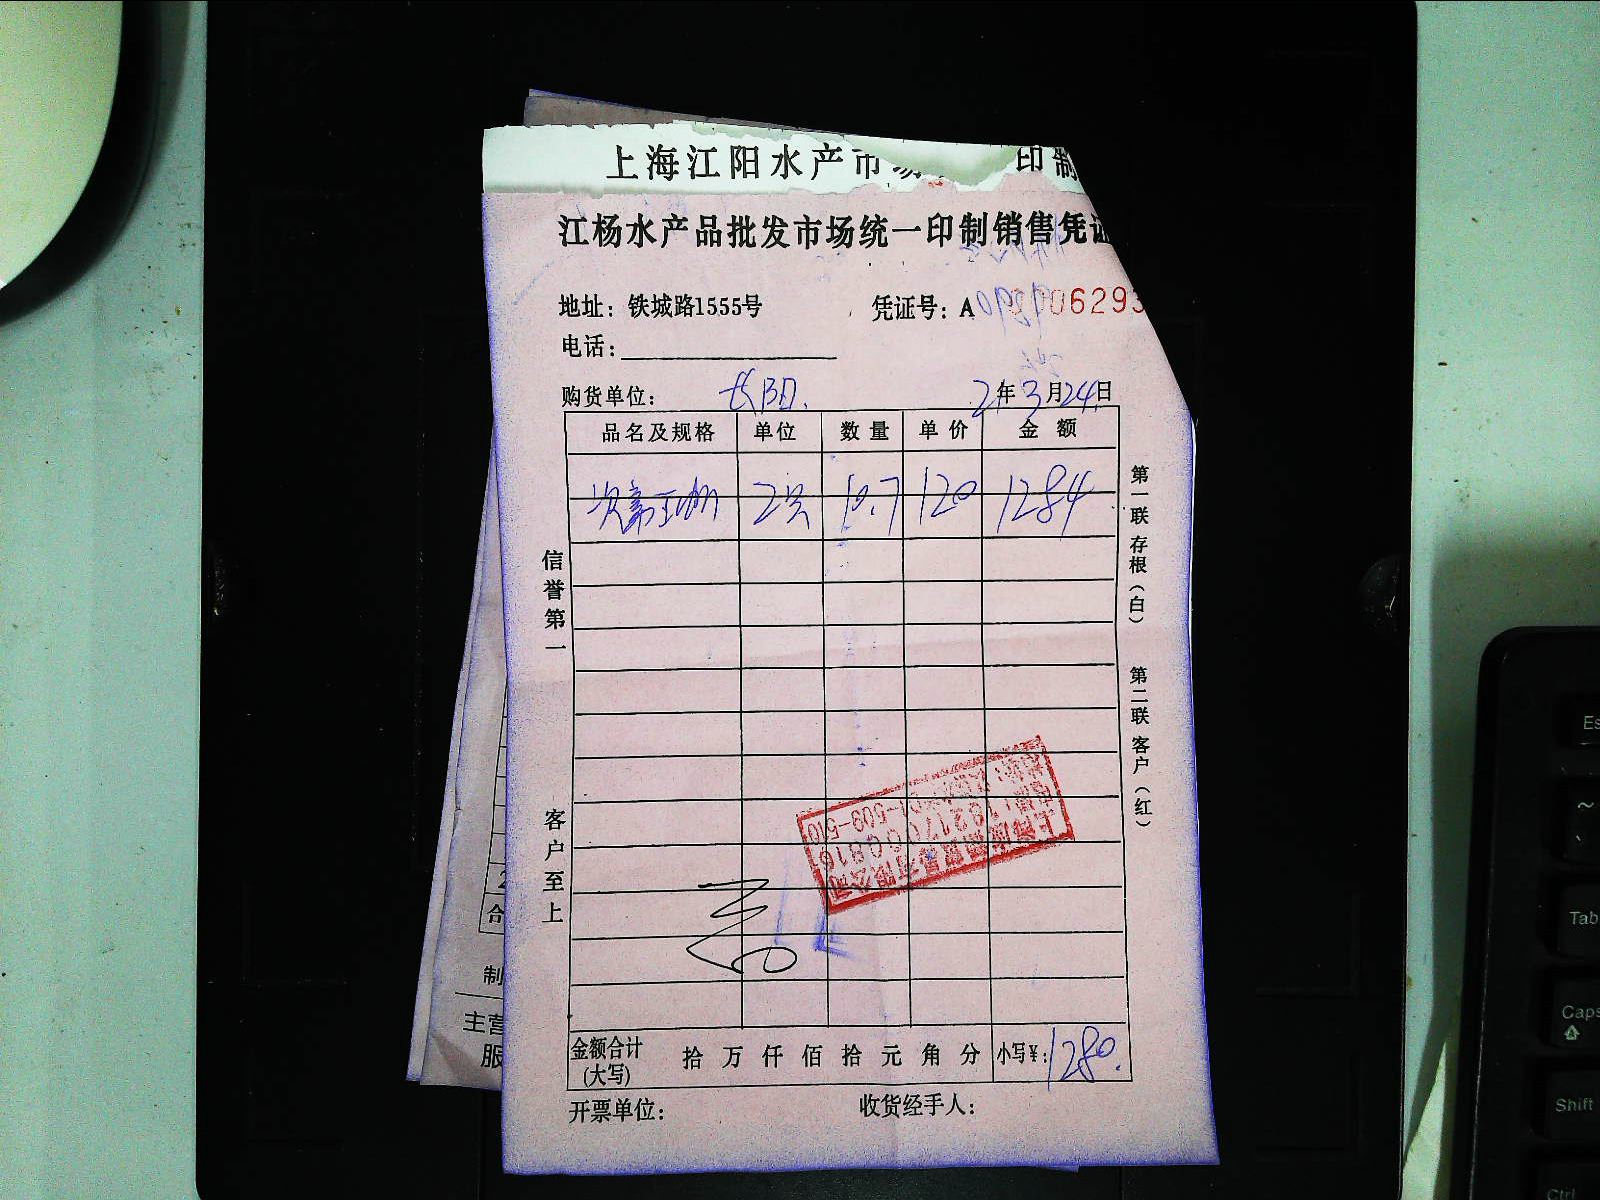 上海江阳水产市 印制
江杨水产品批发市场统一印制销售凭证
地址: 铁城路1555号
凭证号: A 006293
电话:
购货单位: 长阳. 2年3月24日
品名及规格 单位 数量 单价 金额
2只 10.7 120 1284
信誉第一
客户至上
第一联 存根(白)
第二联 客户(红)
金额合计(大写) 拾 万 仟 佰 拾 元 角 分 小写¥: 1280.
开票单位:
收货经手人:
合
制
主营
服
Tab
Caps
Shift
Ctrl